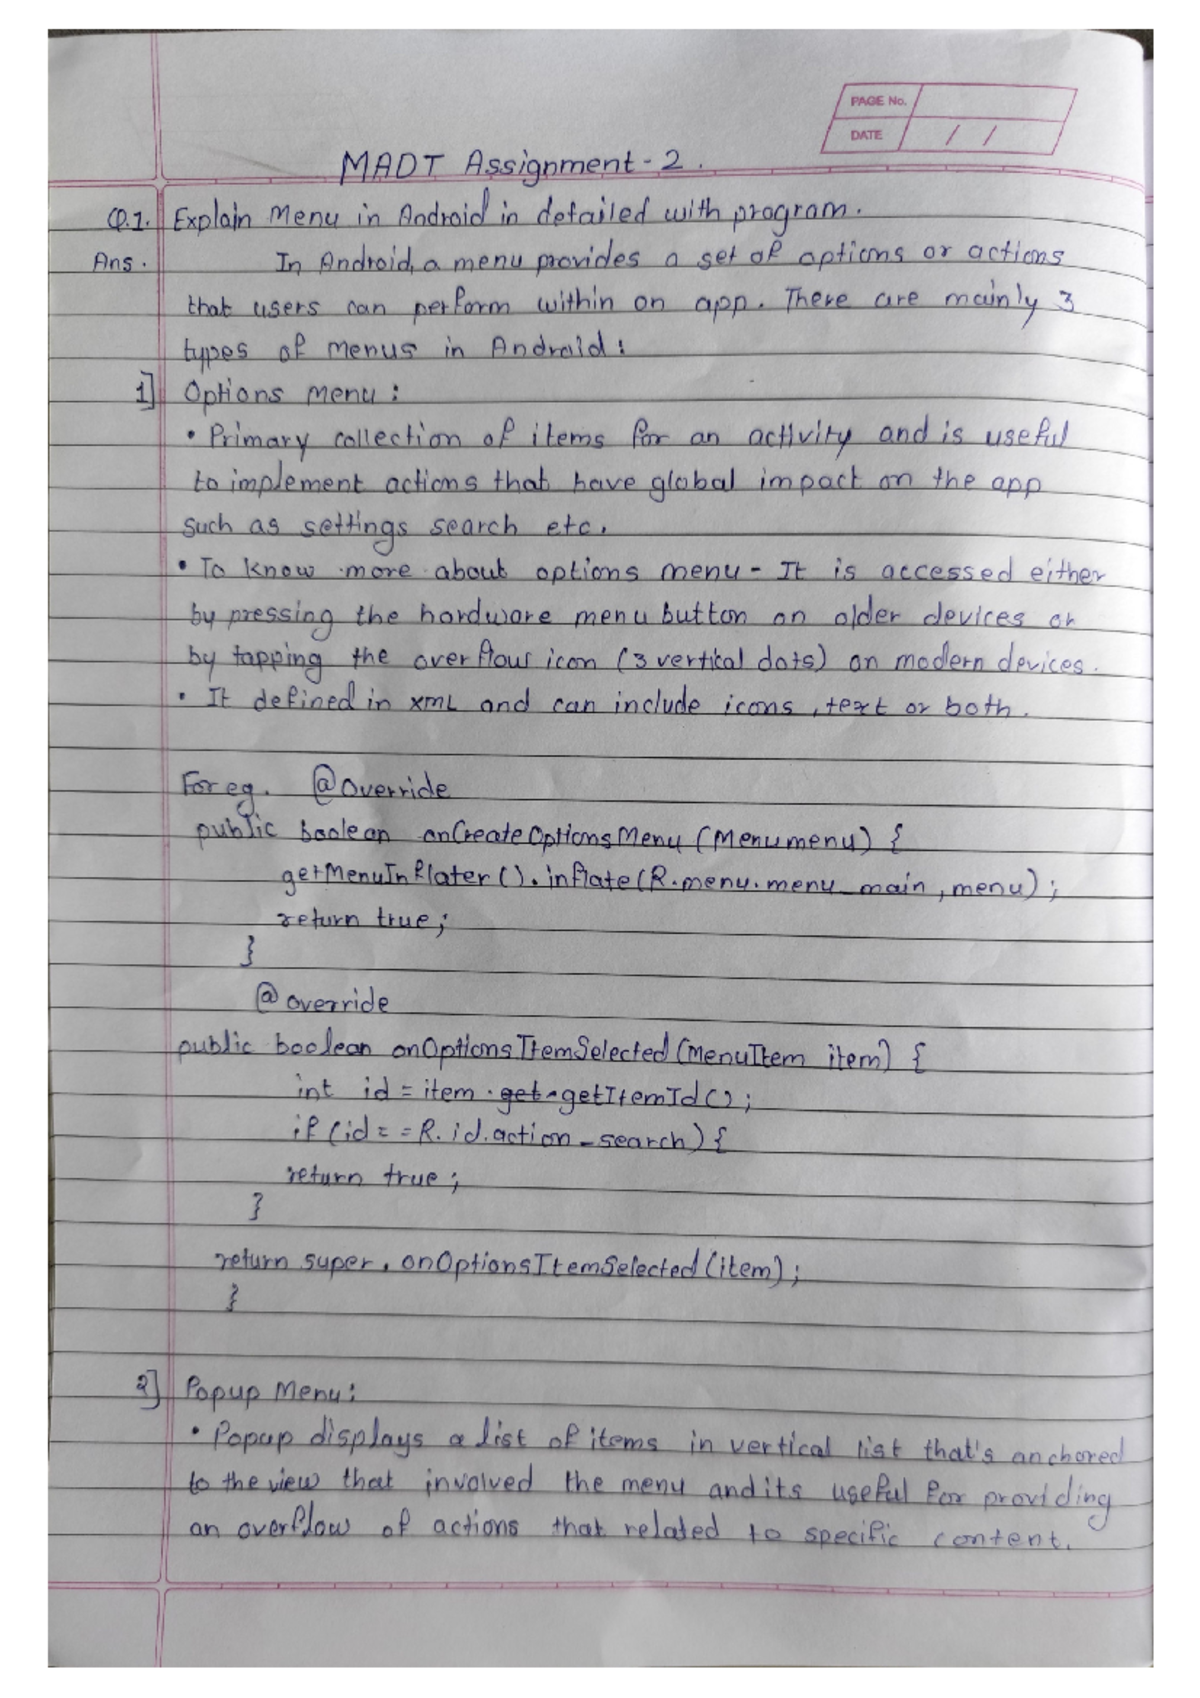 PAGE No.
DATE / /
MADT Assignment-2.
Q.1. Explain Menu in Android in detailed with program.
Ans. In Android, a menu provides a set of options or actions
that users can perform within an app. There are mainly 3
types of menus in Android:
1] Options Menu:
• Primary collection of items for an activity and is useful
to implement actions that have global impact on the app
such as settings search etc.
• To know more about options menu - It is accessed either
by pressing the hardware menu button on older devices or
by tapping the overflow icon (3 vertical dots) on modern devices.
• It defined in XML and can include icons, text or both.
For eg. @override
public boolean onCreateOptionsMenu (Menu menu) {
getMenuInflater().inflate(R.menu.menu_main, menu);
return true;
}
@override
public boolean onOptionsItemSelected (MenuItem item) {
int id = item.get.getItemId();
if (id == R.id.action_search) {
return true;
}
return super.onOptionsItemSelected (item);
}
2] Popup Menu:
• Popup displays a list of items in vertical list that's anchored
to the view that involved the menu and its useful for providing
an overflow of actions that related to specific content.